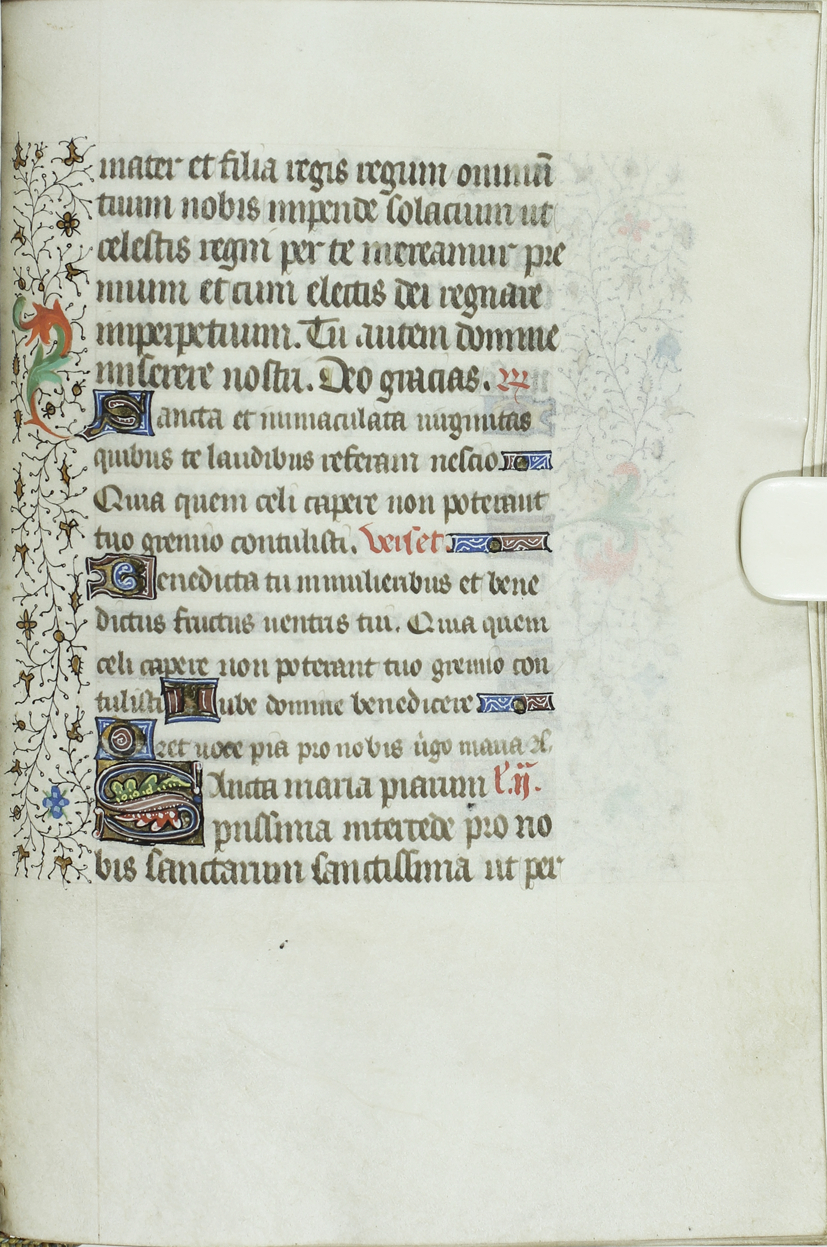 mater et filia regis regum omniū
tuum nobis inpende solacium ut
celestis regni per te mereamur pre
mium et cum electis dei regnare
inperpetuum. Tu autem domine
miserere nostri. Deo gracias. 
Sancta et inmaculata uirginitas
quibus te laudibus referam nescio
Quia quem celi capere non poterant
tuo gremio contulisti. verset
Benedicta tu in mulieribus et bene
dictus fructus uentris tui. Quia quem
celi capere non poterant tuo gremio con
tulisti Iube domine benedicere
Oret uoce pia pro nobis ũgo maria
Sancta maria piarum l'.ij.
piissima intercede pro no
bis sanctarum sanctissima ut per